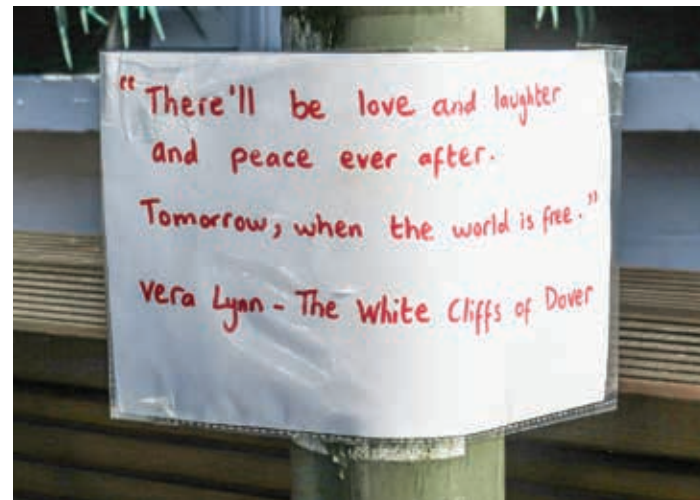 "There'll be love and laughter
and peace ever after.
Tomorrow, when the world is free."
Vera Lynn - The White Cliffs of Dover